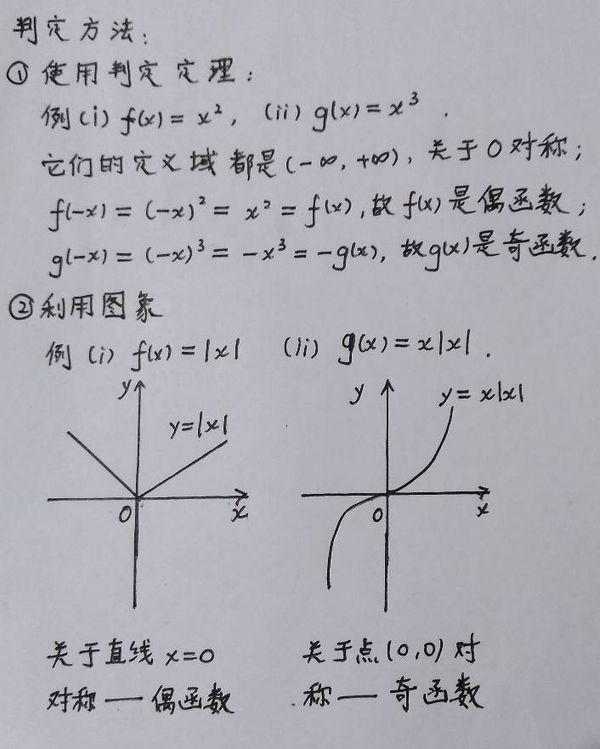 判定方法：
① 使用判定定理：
例 (i) f(x) = x², (ii) g(x) = x³ .
它们的定义域都是 (-∞, +∞), 关于 0 对称；
f(-x) = (-x)² = x² = f(x), 故 f(x) 是偶函数；
g(-x) = (-x)³ = -x³ = -g(x), 故 g(x) 是奇函数.
② 利用图象
例 (i) f(x) = |x| (ii) g(x) = x|x| .
y y=|x| 0 x
y y = x|x| 0 x
关于直线 x=0
对称 — 偶函数
关于点 (0,0) 对
称 — 奇函数